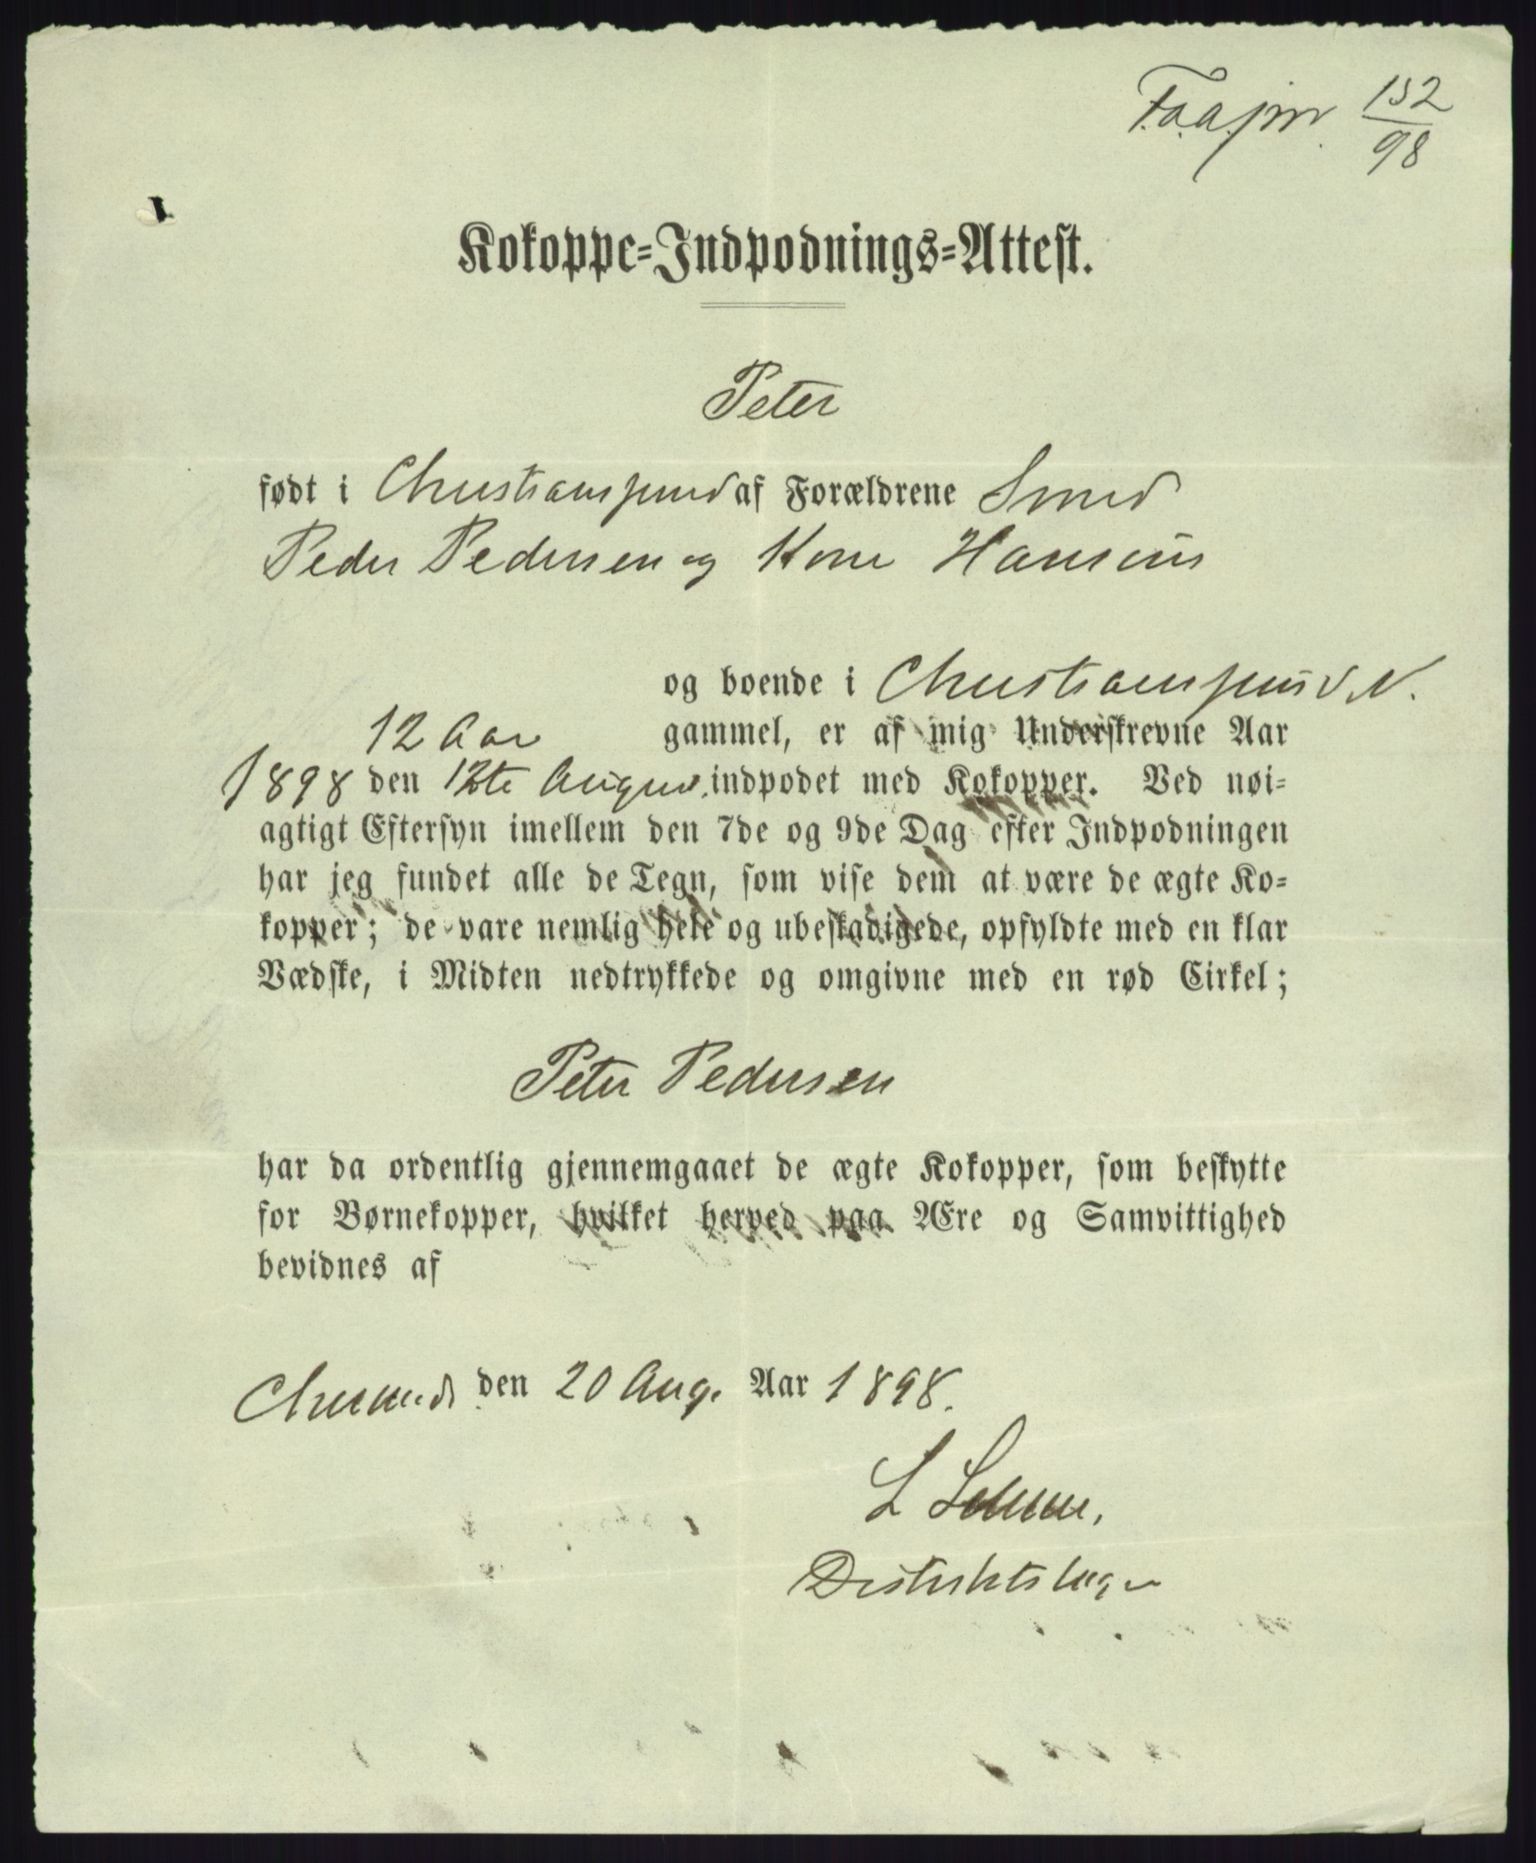 152
98
Kokoppe-Indpodnings-Attest.
Peter
født i Christianssund af Forældrene Smed
Peder Pedersen og Kone Hansine
og boende i Christianssund N.
12 Aar gammel, er af mig Underskrevne Aar
1898 den 12te August indpodet med Kokopper. Ved nøi-
agtigt Eftersyn imellem den 7de og 9de Dag efter Indpodningen
har jeg fundet alle de Tegn, som vise dem at være de ægte Ko-
kopper; de vare nemlig hele og ubeskadigede, opfyldte med en klar
Vædske, i Midten nedtrykkede og omgivne med en rød Cirkel;
Peter Pedersen
har da ordentlig gjennemgaaet de ægte Kokopper, som beskytte
for Børnekopper, hvilket herved paa Ære og Samvittighed
bevidnes af
den 20 Aug. Aar 1898.
L
Distriktslæge